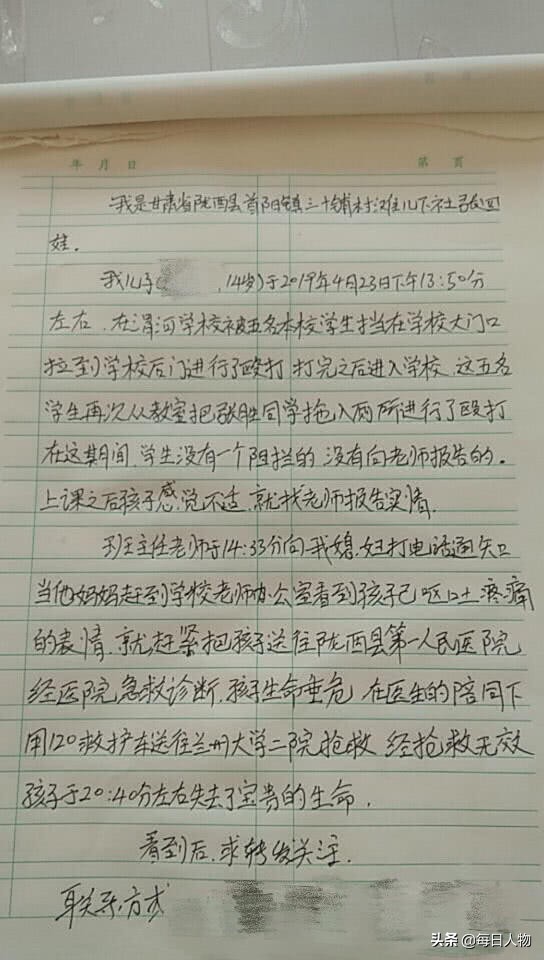 年 月 日 第 页
我是甘肃省陇西县首阳镇三十铺村滩儿下社张四
娃。
我儿子( ,14岁)于2019年4月23日下午13:50分
左右、在渭河学校被五名本校学生挡在学校大门口
拉到学校后门进行了殴打 打完之后进入学校、这五名
学生再次从教室把张胜同学拖入厕所进行了殴打
在这期间、学生没有一个阻拦的 没有向老师报告的。
上课之后孩子感觉不适、就找老师报告实情、
班主任老师于14:33分向我媳妇打电话通知
当他妈妈赶到学校老师办公室看到孩子已呕吐疼痛
的表情、就赶紧把孩子送往陇西县第一人民医院
经医院急救诊断、孩子生命垂危 在医生的陪同下
用120救护车送往兰州大学二院抢救 经抢救无效
孩子于20:40分左右失去了宝贵的生命、
看到后、求转发关注、
联系方式
头条@每日人物